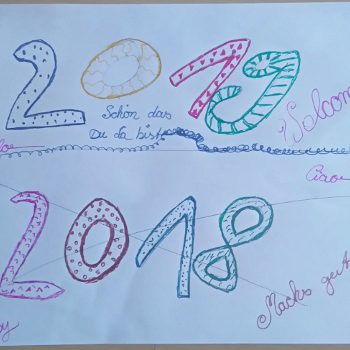 2019
Schön das
Du da bist
Welcom
Ciao
2018
Machs gut